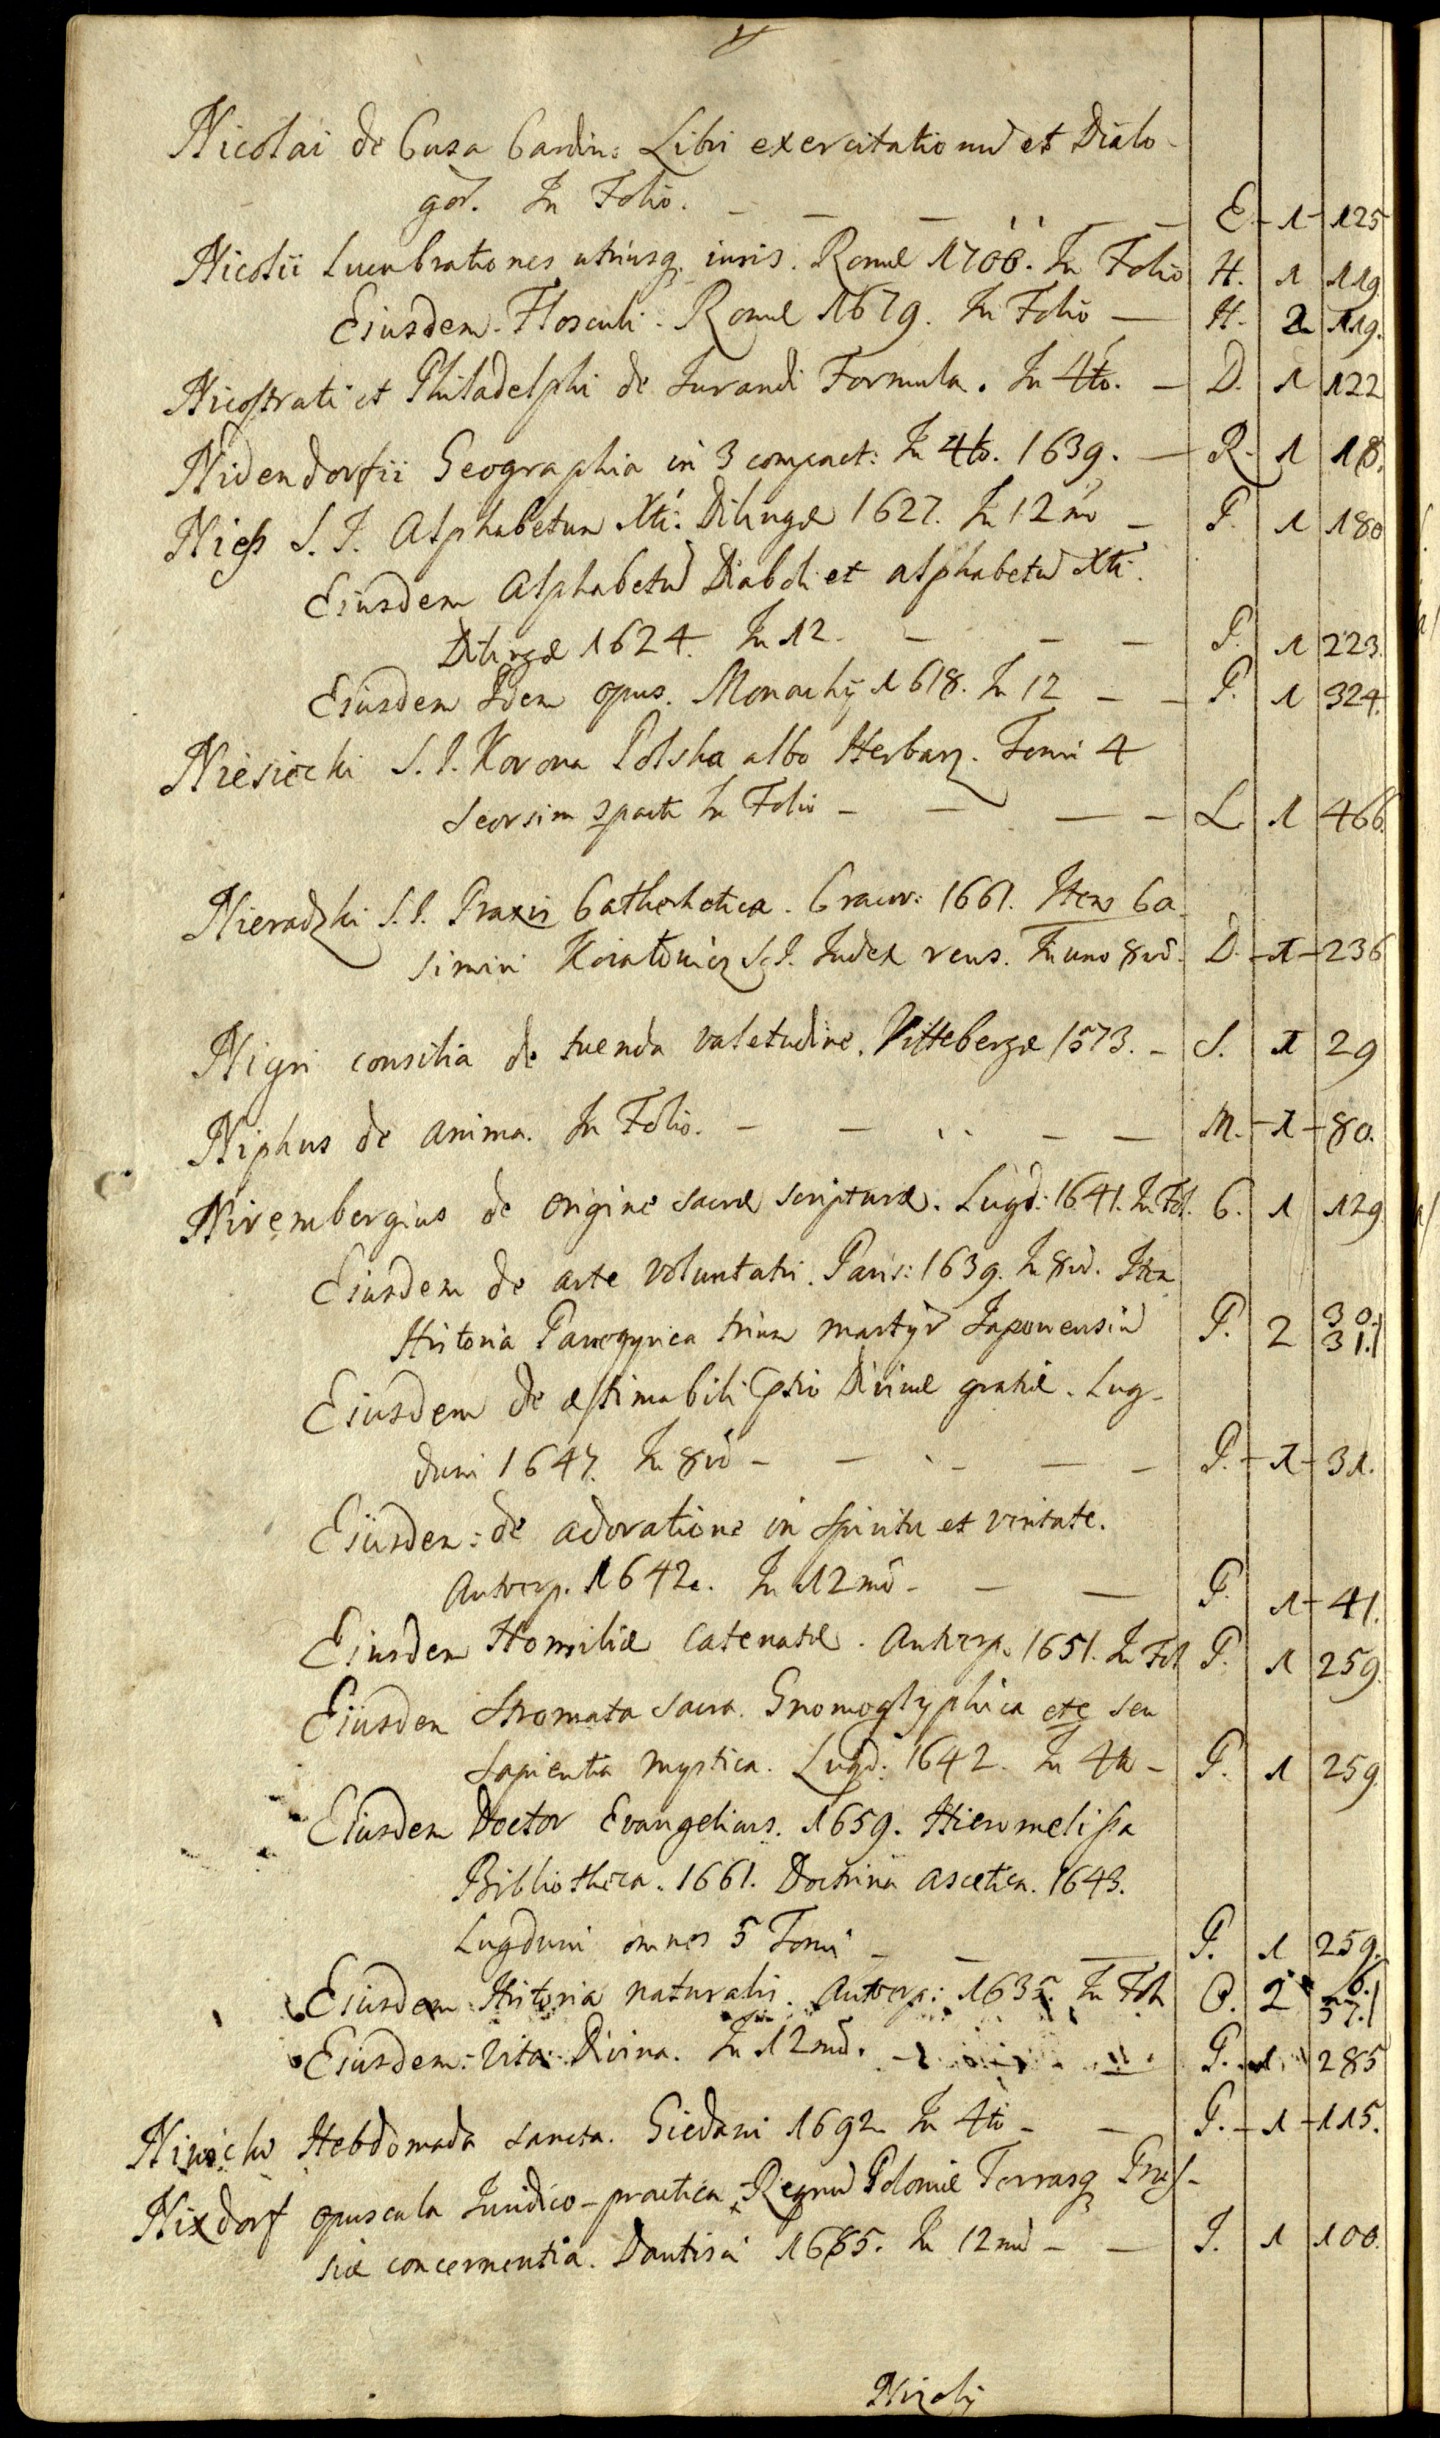 Nicolai de Cusa Cardin: Libri exercitationũ et Dialo-
gor̃. In Folio. — — — — E - 1 - 125
Nicolii Lucubrationes utriusq. iuris. Romæ 1700. In Folio H. 1 119
Eiusdem Flosculi. Romæ 1679. In Folio — H. 2 119.
Nicostrati et Philadelphi de Jurandi Formula. In 4to. — D. 1 122
Nidendorfii Geographia in 3 compact: In 4to. 1639. — R. 1 18.
Niess S. J. Alphabetum Xti: Dilingæ 1627. In 12mo — P. 1 180
Eiusdem Alphabetũ Diaboli et alphabetũ Xti.
Dilingæ 1624. In 12. — — — P. 1 223.
Eiusdem Idem opus. Monachij 1618. In 12 — — P. 1 324.
Niesiecki S. J. Korona Polska albo Herbarz. Tomi 4
seorsim In Folio — — — — L 1 466.
Nieradzki S. J. Praxis Cathechetica. Cracov: 1661. Item Ca-
simiri Koiałowicz S. J. Judex reus. In uno 8vo. D. - 1 - 236
Nigri consilia de tuenda valetudine. Vitteberge 1573. — S. 1 29
Niphus de anima. In Folio. — — — — M. - 1 - 80.
Nirembergius de origine sacræ scripturæ. Lugd: 1641. In Fol. C. 1 129
Eiusdem de arte voluntatis. Paris: 1639. In 8vo. Item
Historia Panegyrica trium martyr̃ Japonensiũ P. 2 30. 31.
Eiusdem de æstimabili ptio Divinæ gratiæ. Lug-
duni 1647. In 8vo — — — — P. - 1 - 31.
Eiusdem: de adoratione in Spiritu et veritate.
Antverp. 1642. In 12mo — — — P. 1 - 41.
Eiusdem Homiliæ catenatæ. Antverp. 1651. In Fol P. 1 259.
Eiusdem Stromata sacra. Gnomoglyphica etc seu
sapientia mystica. Lugd: 1642. In 4to — P. 1 259.
Eiusdem Doctor Evangelicus. 1659. Hieromelissa
Bibliotheca. 1661. Doctrina ascetica. 1643.
Lugduni omnes 5 Tomi — — — P. 1 259.
Eiusdem Historia naturalis. Antverp: 1635. In Fol O. 2 6. 57.
Eiusdem: Vita Divina. In 12mo. — P. 1 285
Hebdomada sancta. Giedani 1692 In 4to — — P. - 1 - 115.
Nixdorf opuscula Juridico-practica Regnũ Poloniæ Terrasq Prus-
siæ concernentia. Dantisci 1685. In 12mo — — J. 1 100.
Nizolij